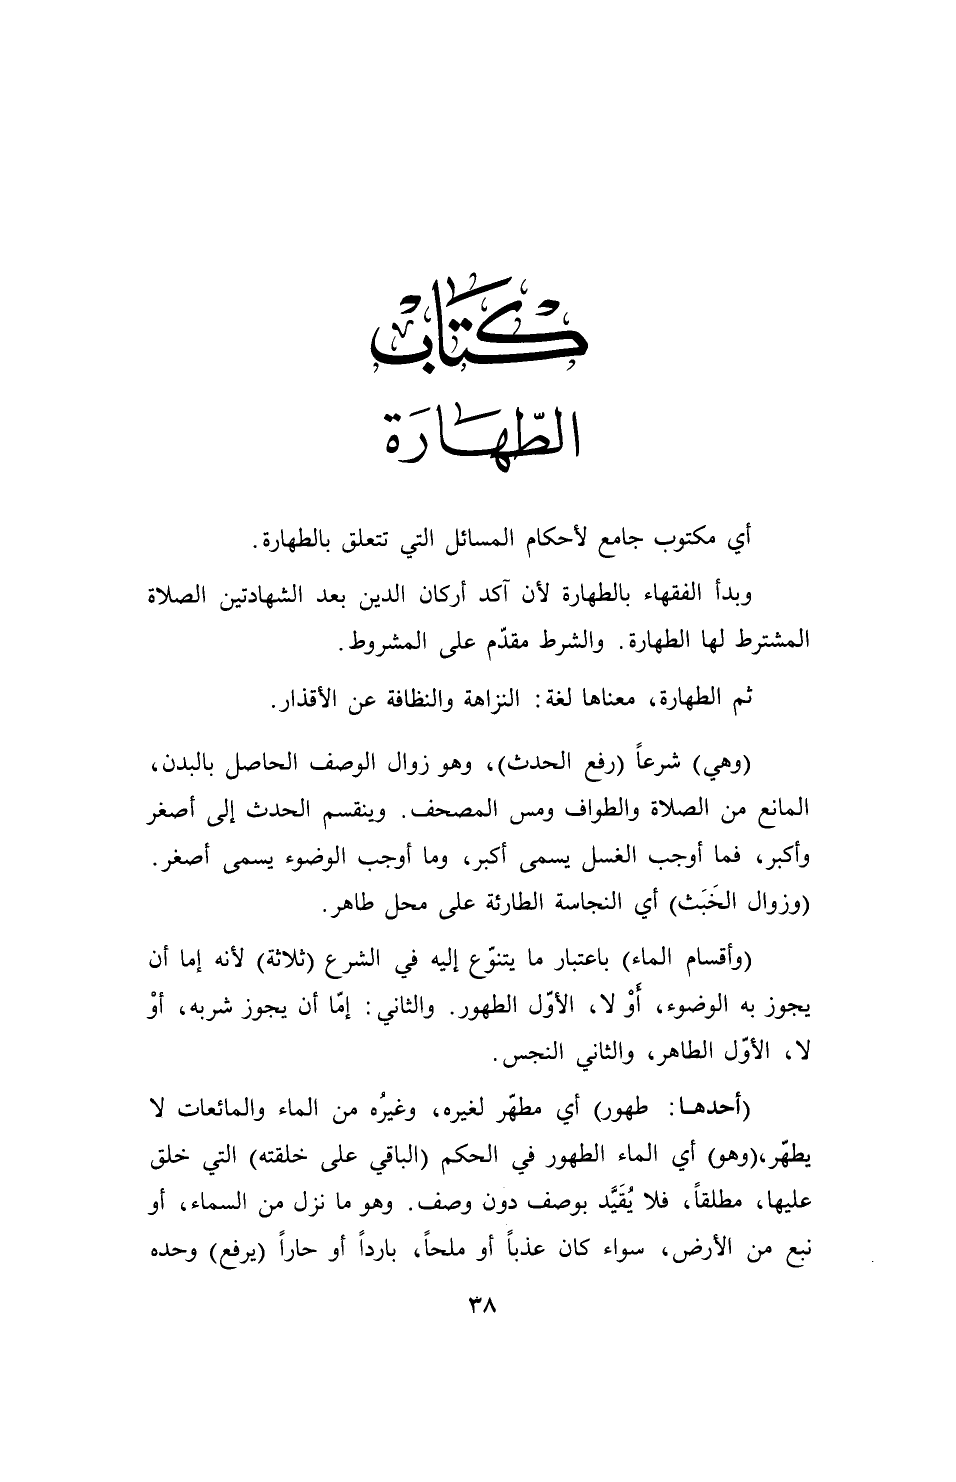 كتاب
الطّهارة
أي مكتوب جامع لأحكام المسائل التي تتعلق بالطهارة.
وبدأ الفقهاء بالطهارة لأن آكد أركان الدين بعد الشهادتين الصلاة
المشترط لها الطهارة. والشرط مقدّم على المشروط.
ثم الطهارة، معناها لغة: النزاهة والنظافة عن الأقذار.
(وهي) شرعاً (رفع الحدث)، وهو زوال الوصف الحاصل بالبدن،
المانع من الصلاة والطواف ومس المصحف. وينقسم الحدث إلى أصغر
وأكبر، فما أوجب الغسل يسمى أكبر، وما أوجب الوضوء يسمى أصغر.
(وزوال الخَبَث) أي النجاسة الطارئة على محل طاهر.
(وأقسام الماء) باعتبار ما يتنوّع إليه في الشرع (ثلاثة) لأنه إما أن
يجوز به الوضوء، أَوْ لا، الأوّل الطهور. والثاني: إمّا أن يجوز شربه، أوْ
لا، الأوّل الطاهر، والثاني النجس.
(أحدهـا: طهور) أي مطهّر لغيره، وغيرُه من الماء والمائعات لا
يطهّر،(وهو) أي الماء الطهور في الحكم (الباقي على خلقته) التي خلق
عليها، مطلقاً، فلا يُقَيَّد بوصف دون وصف. وهو ما نزل من السماء، أو
نبع من الأرض، سواء كان عذباً أو ملحاً، بارداً أو حاراً (يرفع) وحده
٣٨